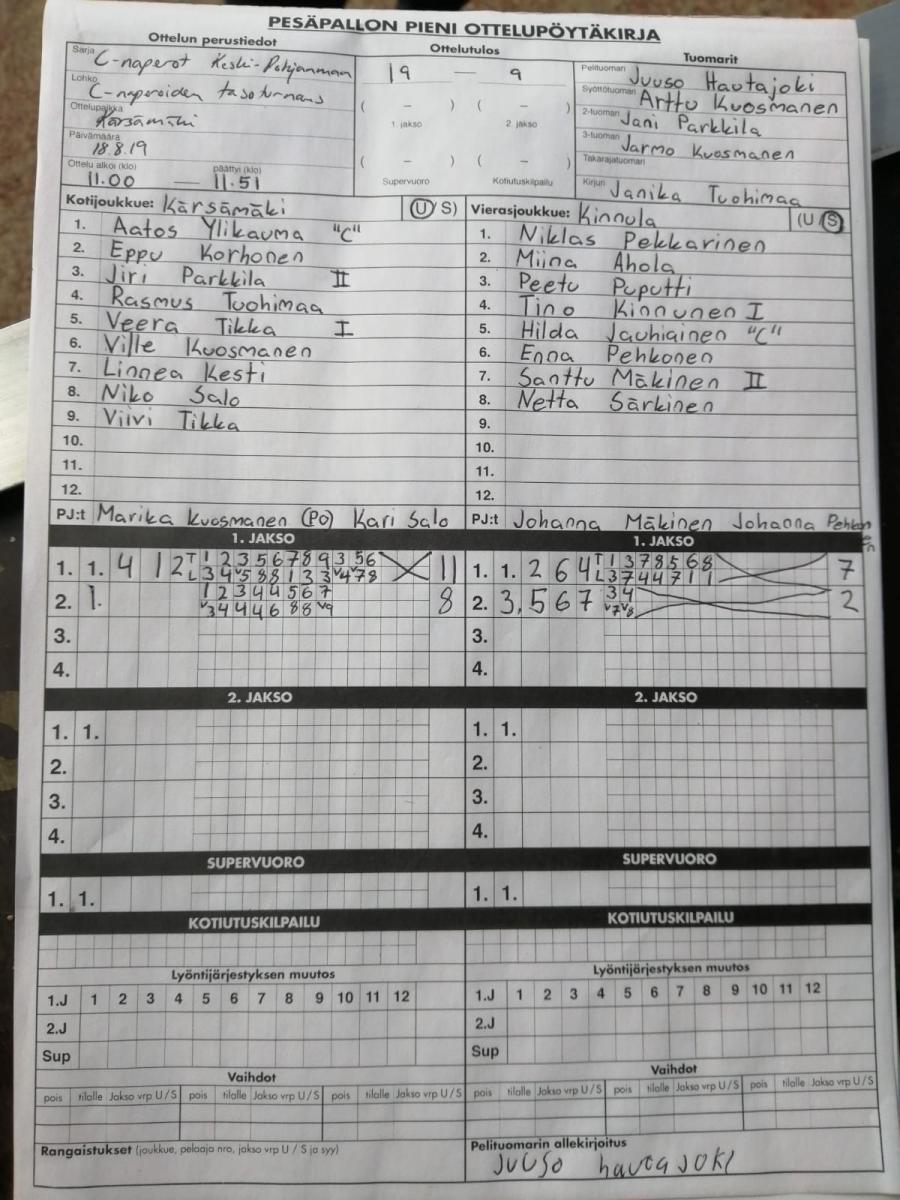 PESÄPALLON PIENI OTTELUPÖYTÄKIRJA
Ottelun perustiedot
Sarja C-naperot Keski-Pohjanmaa
Lohko C-naperoiden tasoturnaus
Ottelupaikka Kärsämäki
Päivämäärä 18.8.19
Ottelu alkoi (klo) päättyi (klo)
11.00 — 11.51
Ottelutulos
19 — 9
( – ) ( – )
1. jakso 2. jakso
( – ) ( – )
Supervuoro Kotiutuskilpailu
Tuomarit
Pelituomari Juuso Hautajoki
Syöttötuomari Arttu Kuosmanen
2-tuomari Jani Parkkila
3-tuomari Jarmo Kuosmanen
Takarajatuomari
Kirjuri Janika Tuohimaa
Kotijoukkue: Kärsämäki (U/S)
1. Aatos Ylikauma "C"
2. Eppu Korhonen
3. Jiri Parkkila II
4. Rasmus Tuohimaa
5. Veera Tikka I
6. Ville Kuosmanen
7. Linnea Kesti
8. Niko Salo
9. Viivi Tikka
10.
11.
12.
PJ:t Marika Kuosmanen (PO) Kari Salo
Vierasjoukkue: Kinnula (U/S)
1. Niklas Pekkarinen
2. Miina Ahola
3. Peetu Puputti
4. Tino Kinnunen I
5. Hilda Jauhiainen "C"
6. Enna Pehkonen
7. Santtu Mäkinen II
8. Netta Särkinen
9.
10.
11.
12.
PJ:t Johanna Mäkinen Johanna Pehkonen
1. JAKSO
1. 1. 4 1 2 T 1 2 3 5 6 7 8 9 3 5 6 11
L 3 4 v5 8 8 1 3 3 v4 v7 8
2. 1. 1 2 3 4 4 5 6 7 8
v3 4 4 4 6 8 8 v9
3.
4.
1. JAKSO
1. 1. 2 6 4 T 1 3 7 8 5 6 8 7
L 3 7 4 4 7 1 1
2. 3, 5 6 7 3 4 2
v7 v8
3.
4.
2. JAKSO
1. 1.
2.
3.
4.
2. JAKSO
1. 1.
2.
3.
4.
SUPERVUORO
1. 1.
SUPERVUORO
1. 1.
KOTIUTUSKILPAILU
KOTIUTUSKILPAILU
Lyöntijärjestyksen muutos
1.J 1 2 3 4 5 6 7 8 9 10 11 12
2.J
Sup
Lyöntijärjestyksen muutos
1.J 1 2 3 4 5 6 7 8 9 10 11 12
2.J
Sup
Vaihdot
pois tilalle Jakso vrp U/S pois tilalle Jakso vrp U/S pois tilalle Jakso vrp U/S
Vaihdot
pois tilalle Jakso vrp U/S pois tilalle Jakso vrp U/S pois tilalle Jakso vrp U/S
Rangaistukset (joukkue, pelaaja nro, jakso vrp U / S ja syy)
Pelituomarin allekirjoitus
Juuso hautajoki